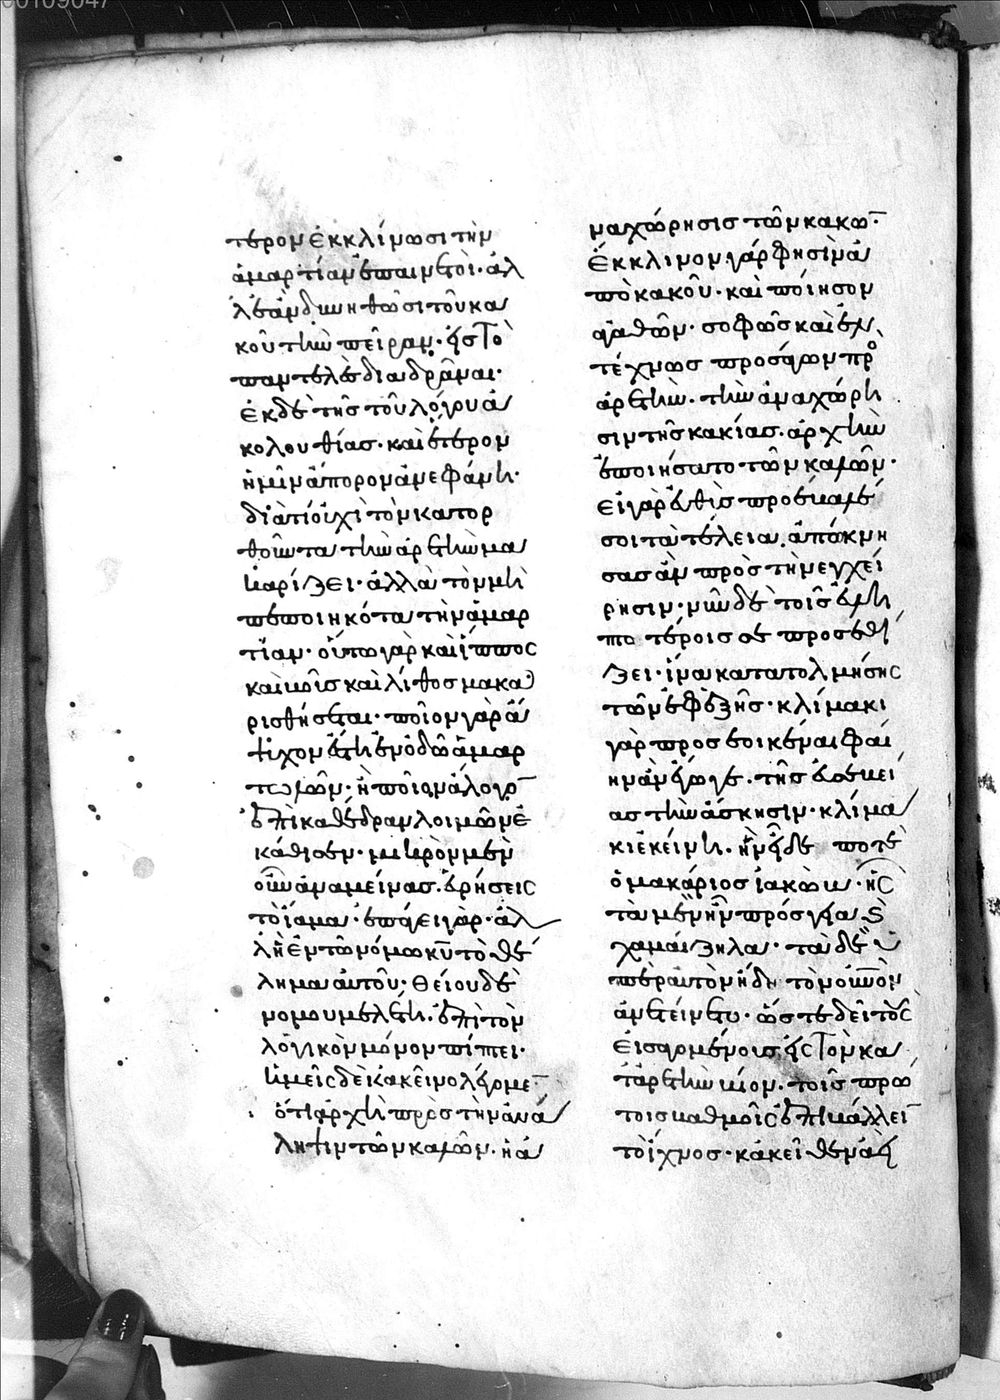 τερον ἐκκλίνωσι τὴν
ἁμαρτίαν ἐπαινετοί· ἀλ
λ' ἐὰν δινηθῶσι τοῦ κα
κοῦ τὴν πεῖραν· εἰς τὸ
παντελὲς διαδρᾶναι·
ἐκ δὲ τῆς τοῦ λόγου ἀ
κολουθίας· καὶ ἕτερον
ἡμῖν ἄπορον ἀνεφάνη·
διατί οὐχὶ τὸν κατορ
θοῦντα τὴν ἀρετὴν μα
καρίζει· ἀλλὰ τὸν μὴ
πεποιηκότα τὴν ἁμαρ
τίαν· οὕτω γὰρ καὶ ἵππος
καὶ βοῦς καὶ λίθος μακα
ρισθήσεται· ποῖον γὰρ ἄ
ψυχον ἔστη ἐν ὁδῷ ἁμαρ
τωλῶν· ἢ ποῖον ἄλογον
ἐπὶ καθέδραν λοιμῶν ἐ
κάθισεν· μικρὸν μὲν
οὖν ἀναμείνας· εὑρήσεις
τὸ ἴαμα· ἐπάγει γάρ· ἀλ
λ' ἢ ἐν τῶ νόμω κυ τὸ θέ
λημα αὐτοῦ· θείου δὲ
νόμου μελέτη· ἐπὶ τὸν
λογικὸν μόνον πίπτει·
ἡμεῖς δὲ κἀκεῖνο λέγομεν
ὅτι ἀρχὴ πρὸς τὴν ἀνά
ληψιν τῶν καλῶν· ἡ ἀ
ναχώρησις τῶν κακῶν·
Ἔκκλινον γάρ φησιν ἀ
πὸ κακοῦ· καὶ ποίησον
ἀγαθόν· σοφῶς καὶ ἐν
τέχνως προσάγων πρὸ
ἀρετήν· τὴν ἀναχώρη
σιν τῆς κακίας· ἀρχὴν
ἐποιήσατο τῶν καλῶν·
εἰ γὰρ εὐθὺς προέβαλέ
σοι τὰ τέλεια, ἀπώκνη
σας ἂν πρὸς τὴν ἐγχεί
ρησιν· νῦν δὲ τοῖς εὐλη
πτοτέροις σε προσεθί
ζει· ἵνα κατατολμήσης
τῶν ἐφεξῆς· κλίμακι
γὰρ προσεοικέναι φαί
ην ἂν ἔγωγε· τῆς εὐσεβεί
ας τὴν ἄσκησιν· κλίμα
κι ἐκείνη· ἣν εἶδέ ποτε
ὁ μακάριος ἰακώβ· ἧς
τὰ μὲν ἦν πρόσγεια καὶ
χαμαίζηλα· τὰ δὲ ὑ
πὲρ αὐτὸν ἤδη τὸν οὐνὸν
ἀνετείνετο· ὥστε δεῖ τοὺς
εἰσαγομένους εἰς τὸν κα
τ' ἀρετὴν βίον· τοῖς πρώ
τοις βαθμοῖς ἐπιβάλλειν
τὸ ἴχνος· κἀκεῖθεν ἀεὶ